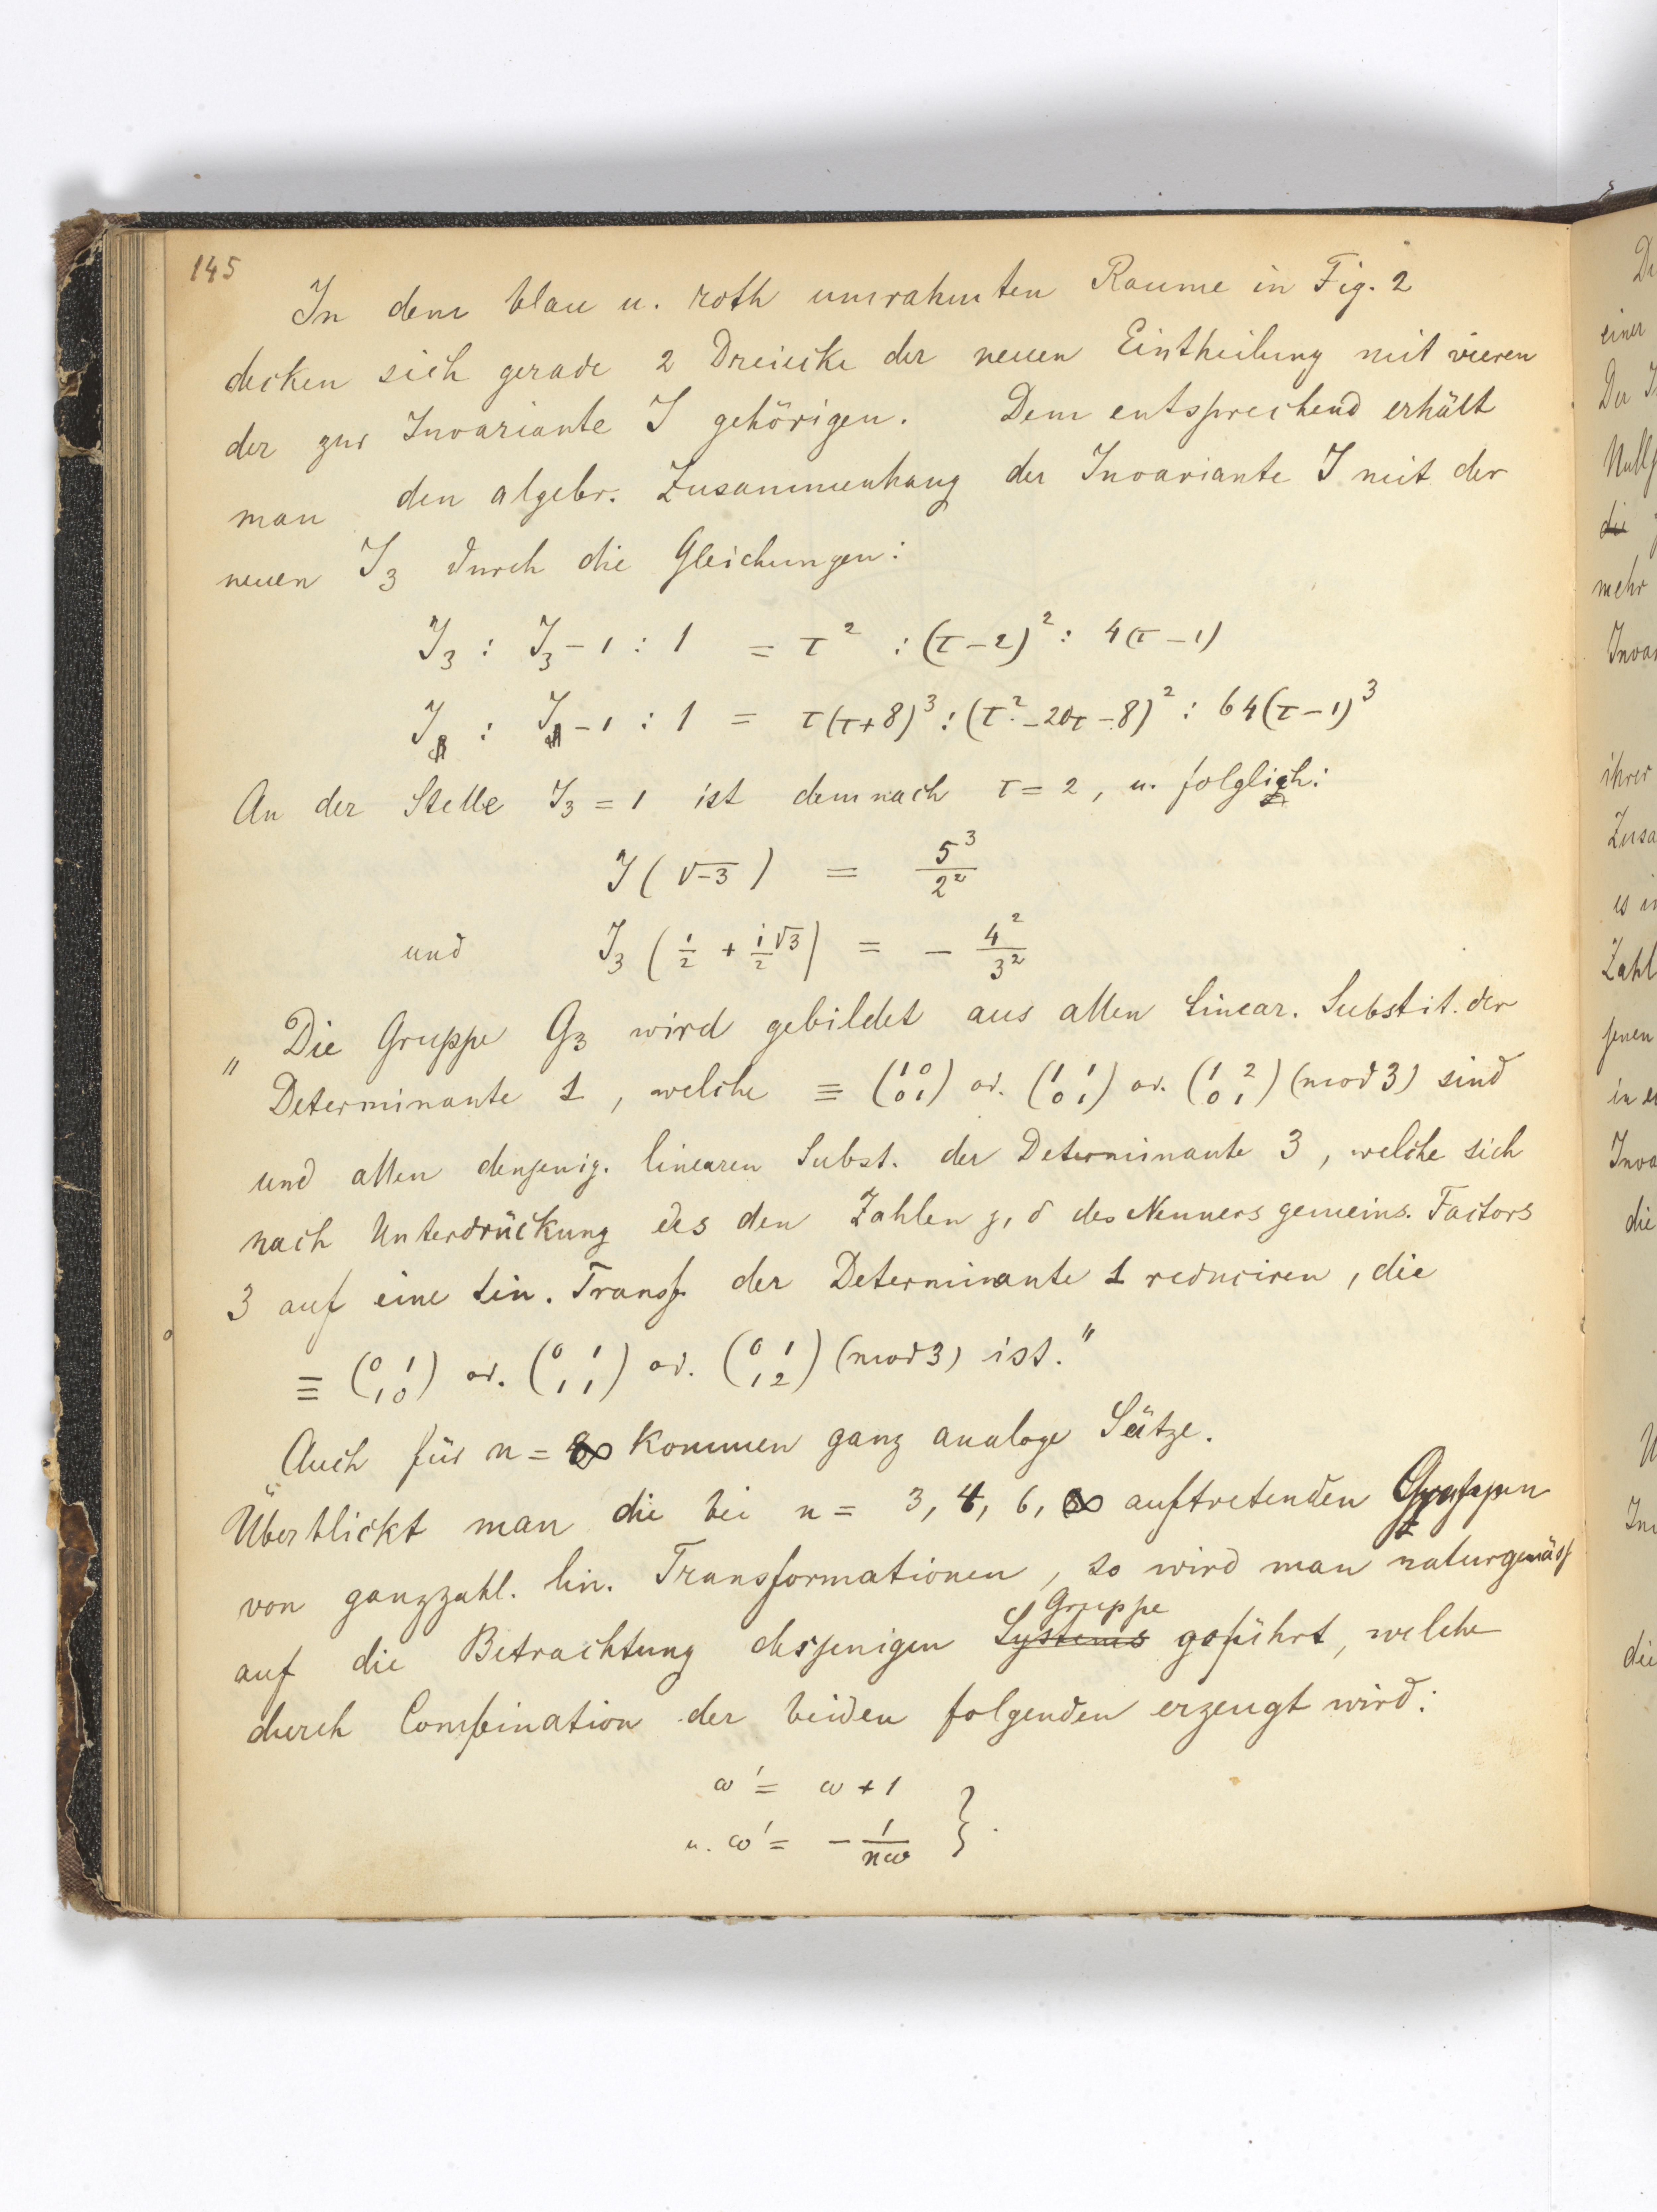 145
In dem blau u. roth umrahmten Raume in Fig. 2
decken sich gerade 2 Dreiecke der neuen Eintheilung mit vieren
der zur Invariante J gehörigen. Dem entsprechend erhält
man den algebr. Zusammenhang der Invariante J mit der
neuen J₃ durch die Gleichungen:
J₃ : J₃ - 1 : 1 = τ² : (τ-2)² : 4(τ-1)
J : J - 1 : 1 = τ(τ+8)³ : (τ²-20τ-8)² : 64(τ-1)³
An der Stelle J₃ = 1 ist demnach τ = 2, u. folglich:
J(√-3) = 5³/2²
und J₃(1/2 + i√3/2) = - 4²/3²
"Die Gruppe G₃ wird gebildet aus allen linear. Substit. der
Determinante 1, welche ≡ (1 0 / 0 1) od. (1 1 / 0 1) od. (1 2 / 0 1) (mod 3) sind
und allen denjenig. linearen Subst. der Determinante 3, welche sich
nach Unterdrückung des den Zahlen γ, δ des Nenners gemeins. Factors
3 auf eine lin. Transf. der Determinante 1 reduciren, die
≡ (0 1 / 1 0) od. (0 1 / 1 1) od. (0 1 / 1 2) (mod 3) ist."
Auch für n = ∞ kommen ganz analoge Sätze.
Überblickt man die bei n = 3, 4, 6, ∞ auftretenden Gruppen
von ganzzahl. lin. Transformationen, so wird man naturgemäss
auf die Betrachtung desjenigen Systems Gruppe geführt, welche
durch Combination der beiden folgenden erzeugt wird:
ω' = ω + 1
u. ω' = - 1/nω }.
Di
einer
Der J
Nullp
die
mehr
Invar
ihrer
Zusa
es in
Zahl
jenen
in e
Inva
die
die